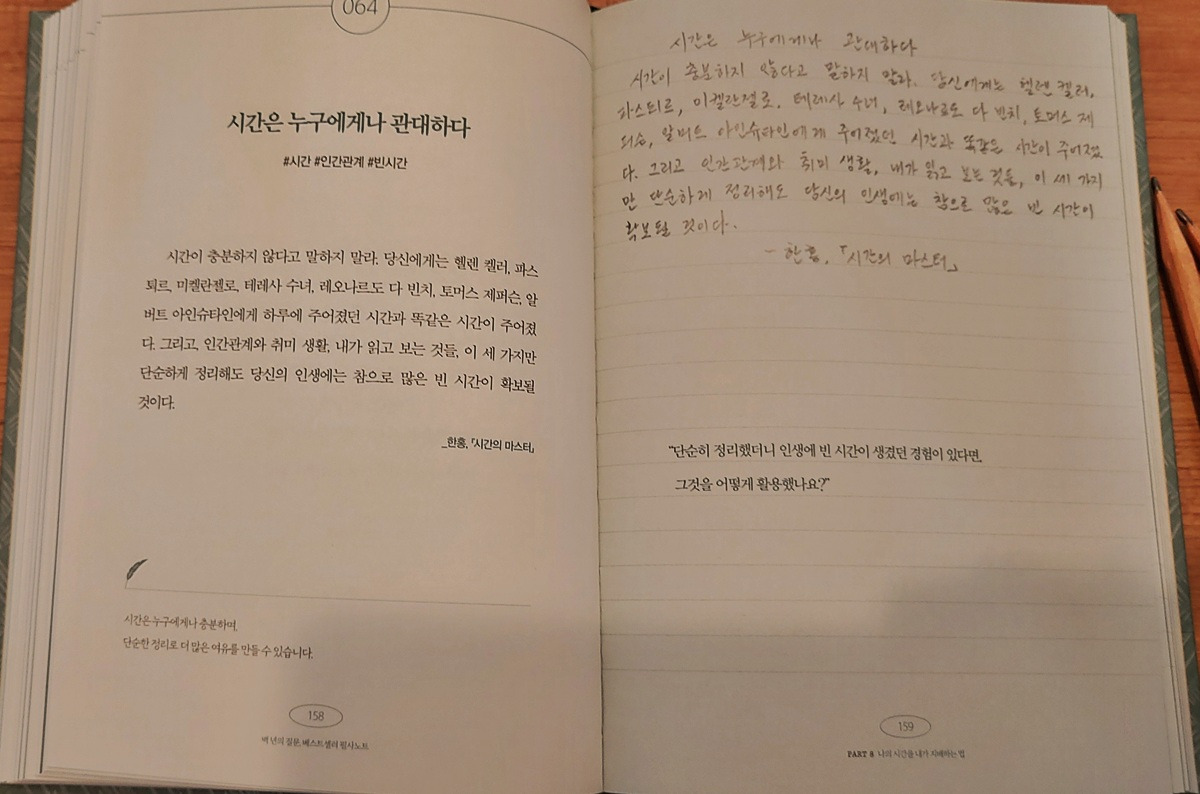 064
시간은 누구에게나 관대하다
#시간 #인간관계 #빈시간
시간이 충분하지 않다고 말하지 말라. 당신에게는 헬렌 켈러, 파스
퇴르, 미켈란젤로, 테레사 수녀, 레오나르도 다 빈치, 토머스 제퍼슨, 알
버트 아인슈타인에게 하루에 주어졌던 시간과 똑같은 시간이 주어졌
다. 그리고, 인간관계와 취미 생활, 내가 읽고 보는 것들, 이 세 가지만
단순하게 정리해도 당신의 인생에는 참으로 많은 빈 시간이 확보될
것이다.
_한홍, 「시간의 마스터」
시간은 누구에게나 충분하며,
단순한 정리로 더 많은 여유를 만들 수 있습니다.
158
백 년의 질문, 베스트셀러 필사노트
시간은 누구에게나 관대하다
시간이 충분하지 않다고 말하지 말라. 당신에게는 헬렌 켈러,
파스퇴르, 미켈란젤로, 테레사 수녀, 레오나르도 다 빈치, 토머스 제
퍼슨, 알버트 아인슈타인에게 주어졌던 시간과 똑같은 시간이 주어졌
다. 그리고 인간관계와 취미 생활, 내가 읽고 보는 것들, 이 세 가지
만 단순하게 정리해도 당신의 인생에는 참으로 많은 빈 시간이
확보될 것이다.
- 한홍, 「시간의 마스터」
“단순히 정리했더니 인생에 빈 시간이 생겼던 경험이 있다면,
그것을 어떻게 활용했나요?”
159
PART 8 나의 시간을 내가 지배하는 법